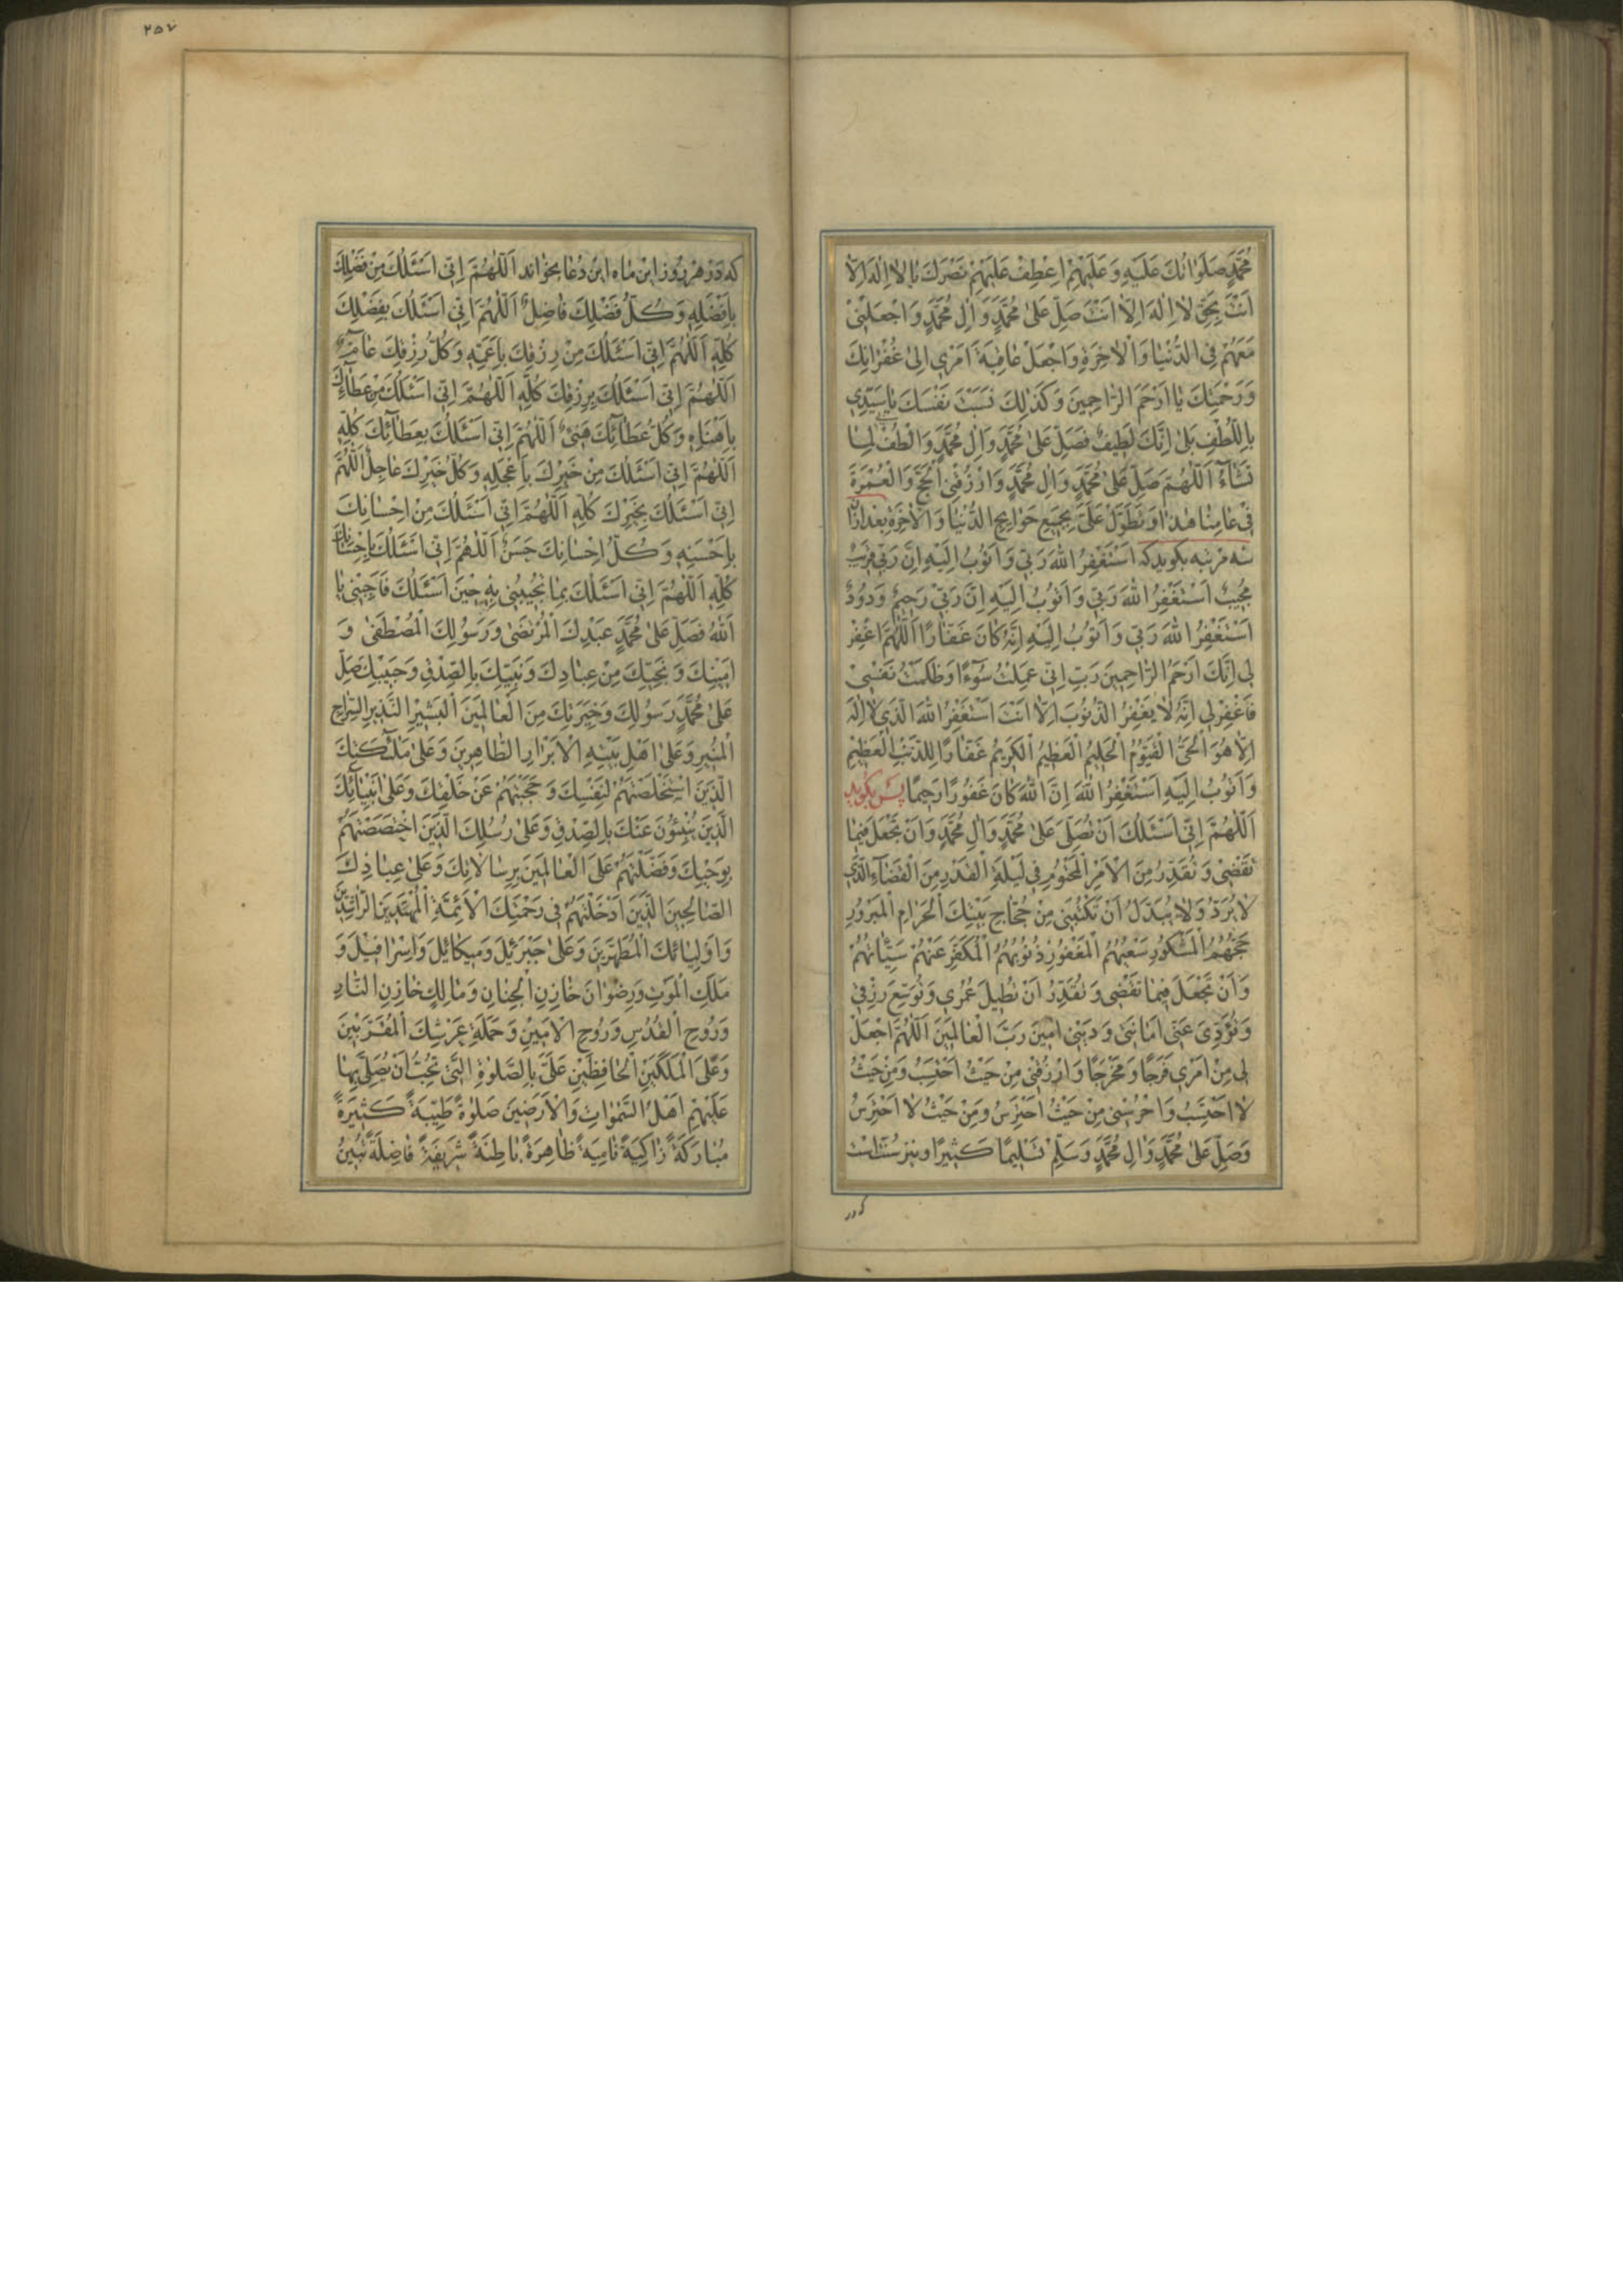 مُحَمَّدٍ صَلَوٰاتُكَ عَلَيْهِ وَعَلَيْهِمْ اِعْطِفْ عَلَيْهِمْ نَصْرَكَ يٰا لٰا اِلٰهَ اِلّٰا
اَنْتَ بِحَقِّ لٰا اِلٰهَ اِلّٰا اَنْتَ صَلِّ عَلىٰ مُحَمَّدٍ وَاٰلِ مُحَمَّدٍ وَاجْعَلْنِي
مَعَهُمْ فِي الدُّنْيٰا وَالْاٰخِرَةِ وَاجْعَلْ عٰاقِبَةَ اَمْرِي اِلىٰ غُفْرٰانِكَ
وَرَحْمَتِكَ يٰا اَرْحَمَ الرّٰاحِمِينَ وَكَذٰلِكَ نَسَبْتَ نَفْسَكَ يٰا سَيِّدِي
بِاللُّطْفِ بَلىٰ اِنَّكَ لَطِيفٌ فَصَلِّ عَلىٰ مُحَمَّدٍ وَاٰلِ مُحَمَّدٍ وَالْطُفْ لِمٰا
تَشٰاءُ اَللّٰهُمَّ صَلِّ عَلىٰ مُحَمَّدٍ وَاٰلِ مُحَمَّدٍ وَارْزُقْنِي الْحَجَّ وَالْعُمْرَةَ
فِي عٰامِنٰا هٰذٰا وَتَطَوَّلْ عَلَيَّ بِجَمِيعِ حَوٰايِجِ الدُّنْيٰا وَالْاٰخِرَةِ بعد ازان
سه مرتبه بكويد كه اَسْتَغْفِرُ اللّٰهَ رَبِّي وَاَتُوبُ اِلَيْهِ اِنَّ رَبِّي قَرِيبٌ
مُجِيبٌ اَسْتَغْفِرُ اللّٰهَ رَبِّي وَاَتُوبُ اِلَيْهِ اِنَّ رَبِّي رَحِيمٌ وَدُودٌ
اَسْتَغْفِرُ اللّٰهَ رَبِّي وَاَتُوبُ اِلَيْهِ اِنَّهُ كٰانَ غَفّٰارًا اَللّٰهُمَّ اغْفِرْ
لِي اِنَّكَ اَرْحَمُ الرّٰاحِمِينَ رَبِّ اِنِّي عَمِلْتُ سُوٓءًا وَظَلَمْتُ نَفْسِي
فَاغْفِرْ لِي اِنَّهُ لٰا يَغْفِرُ الذُّنُوبَ اِلّٰا اَنْتَ اَسْتَغْفِرُ اللّٰهَ الَّذِي لٰا اِلٰهَ
اِلّٰا هُوَ الْحَيُّ الْقَيُّومُ الْحَلِيمُ الْعَظِيمُ الْكَرِيمُ غَفّٰارًا لِلذَّنْبِ الْعَظِيمِ
وَاَتُوبُ اِلَيْهِ اَسْتَغْفِرُ اللّٰهَ اِنَّ اللّٰهَ كٰانَ غَفُورًا رَحِيمًا پس بكويد
اَللّٰهُمَّ اِنِّي اَسْئَلُكَ اَنْ تُصَلِّيَ عَلىٰ مُحَمَّدٍ وَاٰلِ مُحَمَّدٍ وَاَنْ تَجْعَلَ فِيمٰا
تَقْضِي وَتُقَدِّرُ مِنَ الْاَمْرِ الْمَحْتُومِ فِي لَيْلَةِ الْقَدْرِ مِنَ الْقَضٰاءِ الَّذِي
لٰا يُرَدُّ وَلٰا يُبَدَّلُ اَنْ تَكْتُبَنِي مِنْ حُجّٰاجِ بَيْتِكَ الْحَرٰامِ الْمَبْرُورِ
حَجُّهُمُ الْمَشْكُورِ سَعْيُهُمُ الْمَغْفُورِ ذُنُوبُهُمُ الْمُكَفَّرِ عَنْهُمْ سَيِّئٰاتُهُمْ
وَاَنْ تَجْعَلَ فِيمٰا تَقْضِي وَتُقَدِّرُ اَنْ تُطِيلَ عُمُرِي وَتُوَسِّعَ رِزْقِي
وَتُؤَدِّيَ عَنِّي اَمٰانَتِي وَدَيْنِي اٰمِينَ رَبَّ الْعٰالَمِينَ اَللّٰهُمَّ اجْعَلْ
لِي مِنْ اَمْرِي فَرَجًا وَمَخْرَجًا وَارْزُقْنِي مِنْ حَيْثُ اَحْتَسِبُ وَمِنْ حَيْثُ
لٰا اَحْتَسِبُ وَاحْرُسْنِي مِنْ حَيْثُ اَحْتَرِسُ وَمِنْ حَيْثُ لٰا اَحْتَرِسُ
وَصَلِّ عَلىٰ مُحَمَّدٍ وَاٰلِ مُحَمَّدٍ وَسَلِّمْ تَسْلِيمًا كَثِيرًا و نيز سنت است
٢٥٧
كه در هر روز اين ماه اين دعا بخواند اَللّٰهُمَّ اِنِّي اَسْئَلُكَ مِنْ فَضْلِكَ
بِاَفْضَلِهِ وَكُلُّ فَضْلِكَ فٰاضِلٌ اَللّٰهُمَّ اِنِّي اَسْئَلُكَ بِفَضْلِكَ
كُلِّهِ اَللّٰهُمَّ اِنِّي اَسْئَلُكَ مِنْ رِزْقِكَ بِاَعَمِّهِ وَكُلُّ رِزْقِكَ عٰامٌّ
اَللّٰهُمَّ اِنِّي اَسْئَلُكَ بِرِزْقِكَ كُلِّهِ اَللّٰهُمَّ اِنِّي اَسْئَلُكَ مِنْ عَطٰائِكَ
بِاَهْنَاهِ وَكُلُّ عَطٰائِكَ هَنِيءٌ اَللّٰهُمَّ اِنِّي اَسْئَلُكَ بِعَطٰائِكَ كُلِّهِ
اَللّٰهُمَّ اِنِّي اَسْئَلُكَ مِنْ خَيْرِكَ بِاَعْجَلِهِ وَكُلُّ خَيْرِكَ عٰاجِلٌ اَللّٰهُمَّ
اِنِّي اَسْئَلُكَ بِخَيْرِكَ كُلِّهِ اَللّٰهُمَّ اِنِّي اَسْئَلُكَ مِنْ اِحْسٰانِكَ
بِاَحْسَنِهِ وَكُلُّ اِحْسٰانِكَ حَسَنٌ اَللّٰهُمَّ اِنِّي اَسْئَلُكَ بِاِحْسٰانِكَ
كُلِّهِ اَللّٰهُمَّ اِنِّي اَسْئَلُكَ بِمٰا تُجِيبُنِي بِهِ حِينَ اَسْئَلُكَ فَاَجِبْنِي يٰا
اَللّٰهُ فَصَلِّ عَلىٰ مُحَمَّدٍ عَبْدِكَ الْمُرْتَضىٰ وَرَسُولِكَ الْمُصْطَفىٰ وَ
اَمِينِكَ وَنَجِيِّكَ مِنْ عِبٰادِكَ وَنَبِيِّكَ بِالصِّدْقِ وَحَبِيبِكَ صَلِّ
عَلىٰ مُحَمَّدٍ رَسُولِكَ وَخِيَرَتِكَ مِنَ الْعٰالَمِينَ الْبَشِيرِ النَّذِيرِ السِّرٰاجِ
الْمُنِيرِ وَعَلىٰ اَهْلِ بَيْتِهِ الْاَبْرٰارِ الطّٰاهِرِينَ وَعَلىٰ مَلٰٓئِكَتِكَ
الَّذِينَ اسْتَخْلَصْتَهُمْ لِنَفْسِكَ وَحَجَبْتَهُمْ عَنْ خَلْقِكَ وَعَلىٰ اَنْبِيٰائِكَ
الَّذِينَ يُنْبِئُونَ عَنْكَ بِالصِّدْقِ وَعَلىٰ رُسُلِكَ الَّذِينَ اخْتَصَصْتَهُمْ
بِوَحْيِكَ وَفَضَّلْتَهُمْ عَلَى الْعٰالَمِينَ بِرِسٰالٰاتِكَ وَعَلىٰ عِبٰادِكَ
الصّٰالِحِينَ الَّذِينَ اَدْخَلْتَهُمْ فِي رَحْمَتِكَ الْاَئِمَّةِ الْمُهْتَدِينَ الرّٰاشِدِينَ
وَاَوْلِيٰائِكَ الْمُطَهَّرِينَ وَعَلىٰ جَبْرَئِيلَ وَمِيكٰائِيلَ وَاِسْرٰافِيلَ وَ
مَلَكِ الْمَوْتِ وَرِضْوٰانَ خٰازِنِ الْجِنٰانِ وَمٰالِكٍ خٰازِنِ النّٰارِ
وَرُوحِ الْقُدُسِ وَرُوحِ الْاَمِينِ وَحَمَلَةِ عَرْشِكَ الْمُقَرَّبِينَ
وَعَلَى الْمَلَكَيْنِ الْحٰافِظَيْنِ عَلَيَّ بِالصَّلٰوةِ الَّتِي تُحِبُّ اَنْ يُصَلِّيَ بِهٰا
عَلَيْهِمْ اَهْلُ السَّمٰوٰاتِ وَالْاَرَضِينَ صَلٰوةً طَيِّبَةً كَثِيرَةً
مُبٰارَكَةً زٰاكِيَةً نٰامِيَةً ظٰاهِرَةً بٰاطِنَةً شَرِيفَةً فٰاضِلَةً تُبَيِّنُ